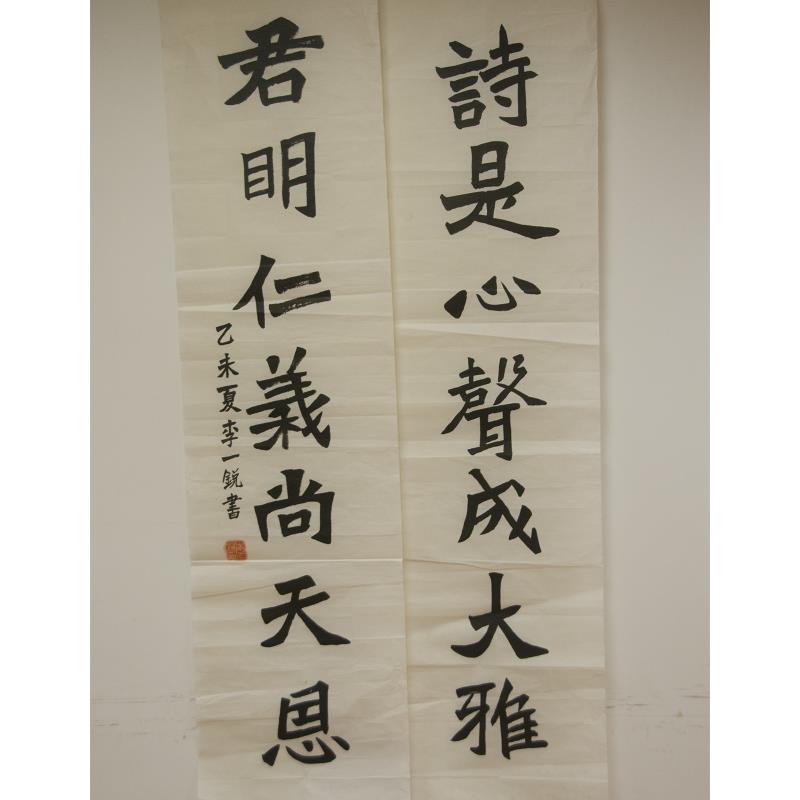 詩是心聲成大雅
君明仁義尚天恩
乙未夏李一銳書